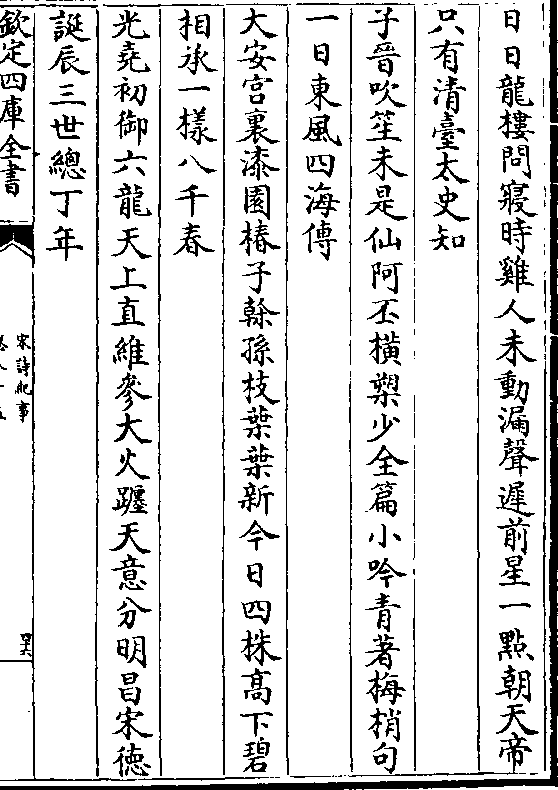 日日龍樓問寢時雞人未動漏聲遲前星一點朝天帝
只有清臺太史知
子晉吹笙未是仙阿丕橫槊少全篇小吟青著梅梢句
一日東風四海傳
大安宫裏漆園椿子榦孫枝葉葉新今日四株高下碧
相承一樣八千春
光堯初御六龍天上直維參大火躔天意分明昌宋徳
誕辰三世總丁年
欽定四庫全書
宋詩紀事